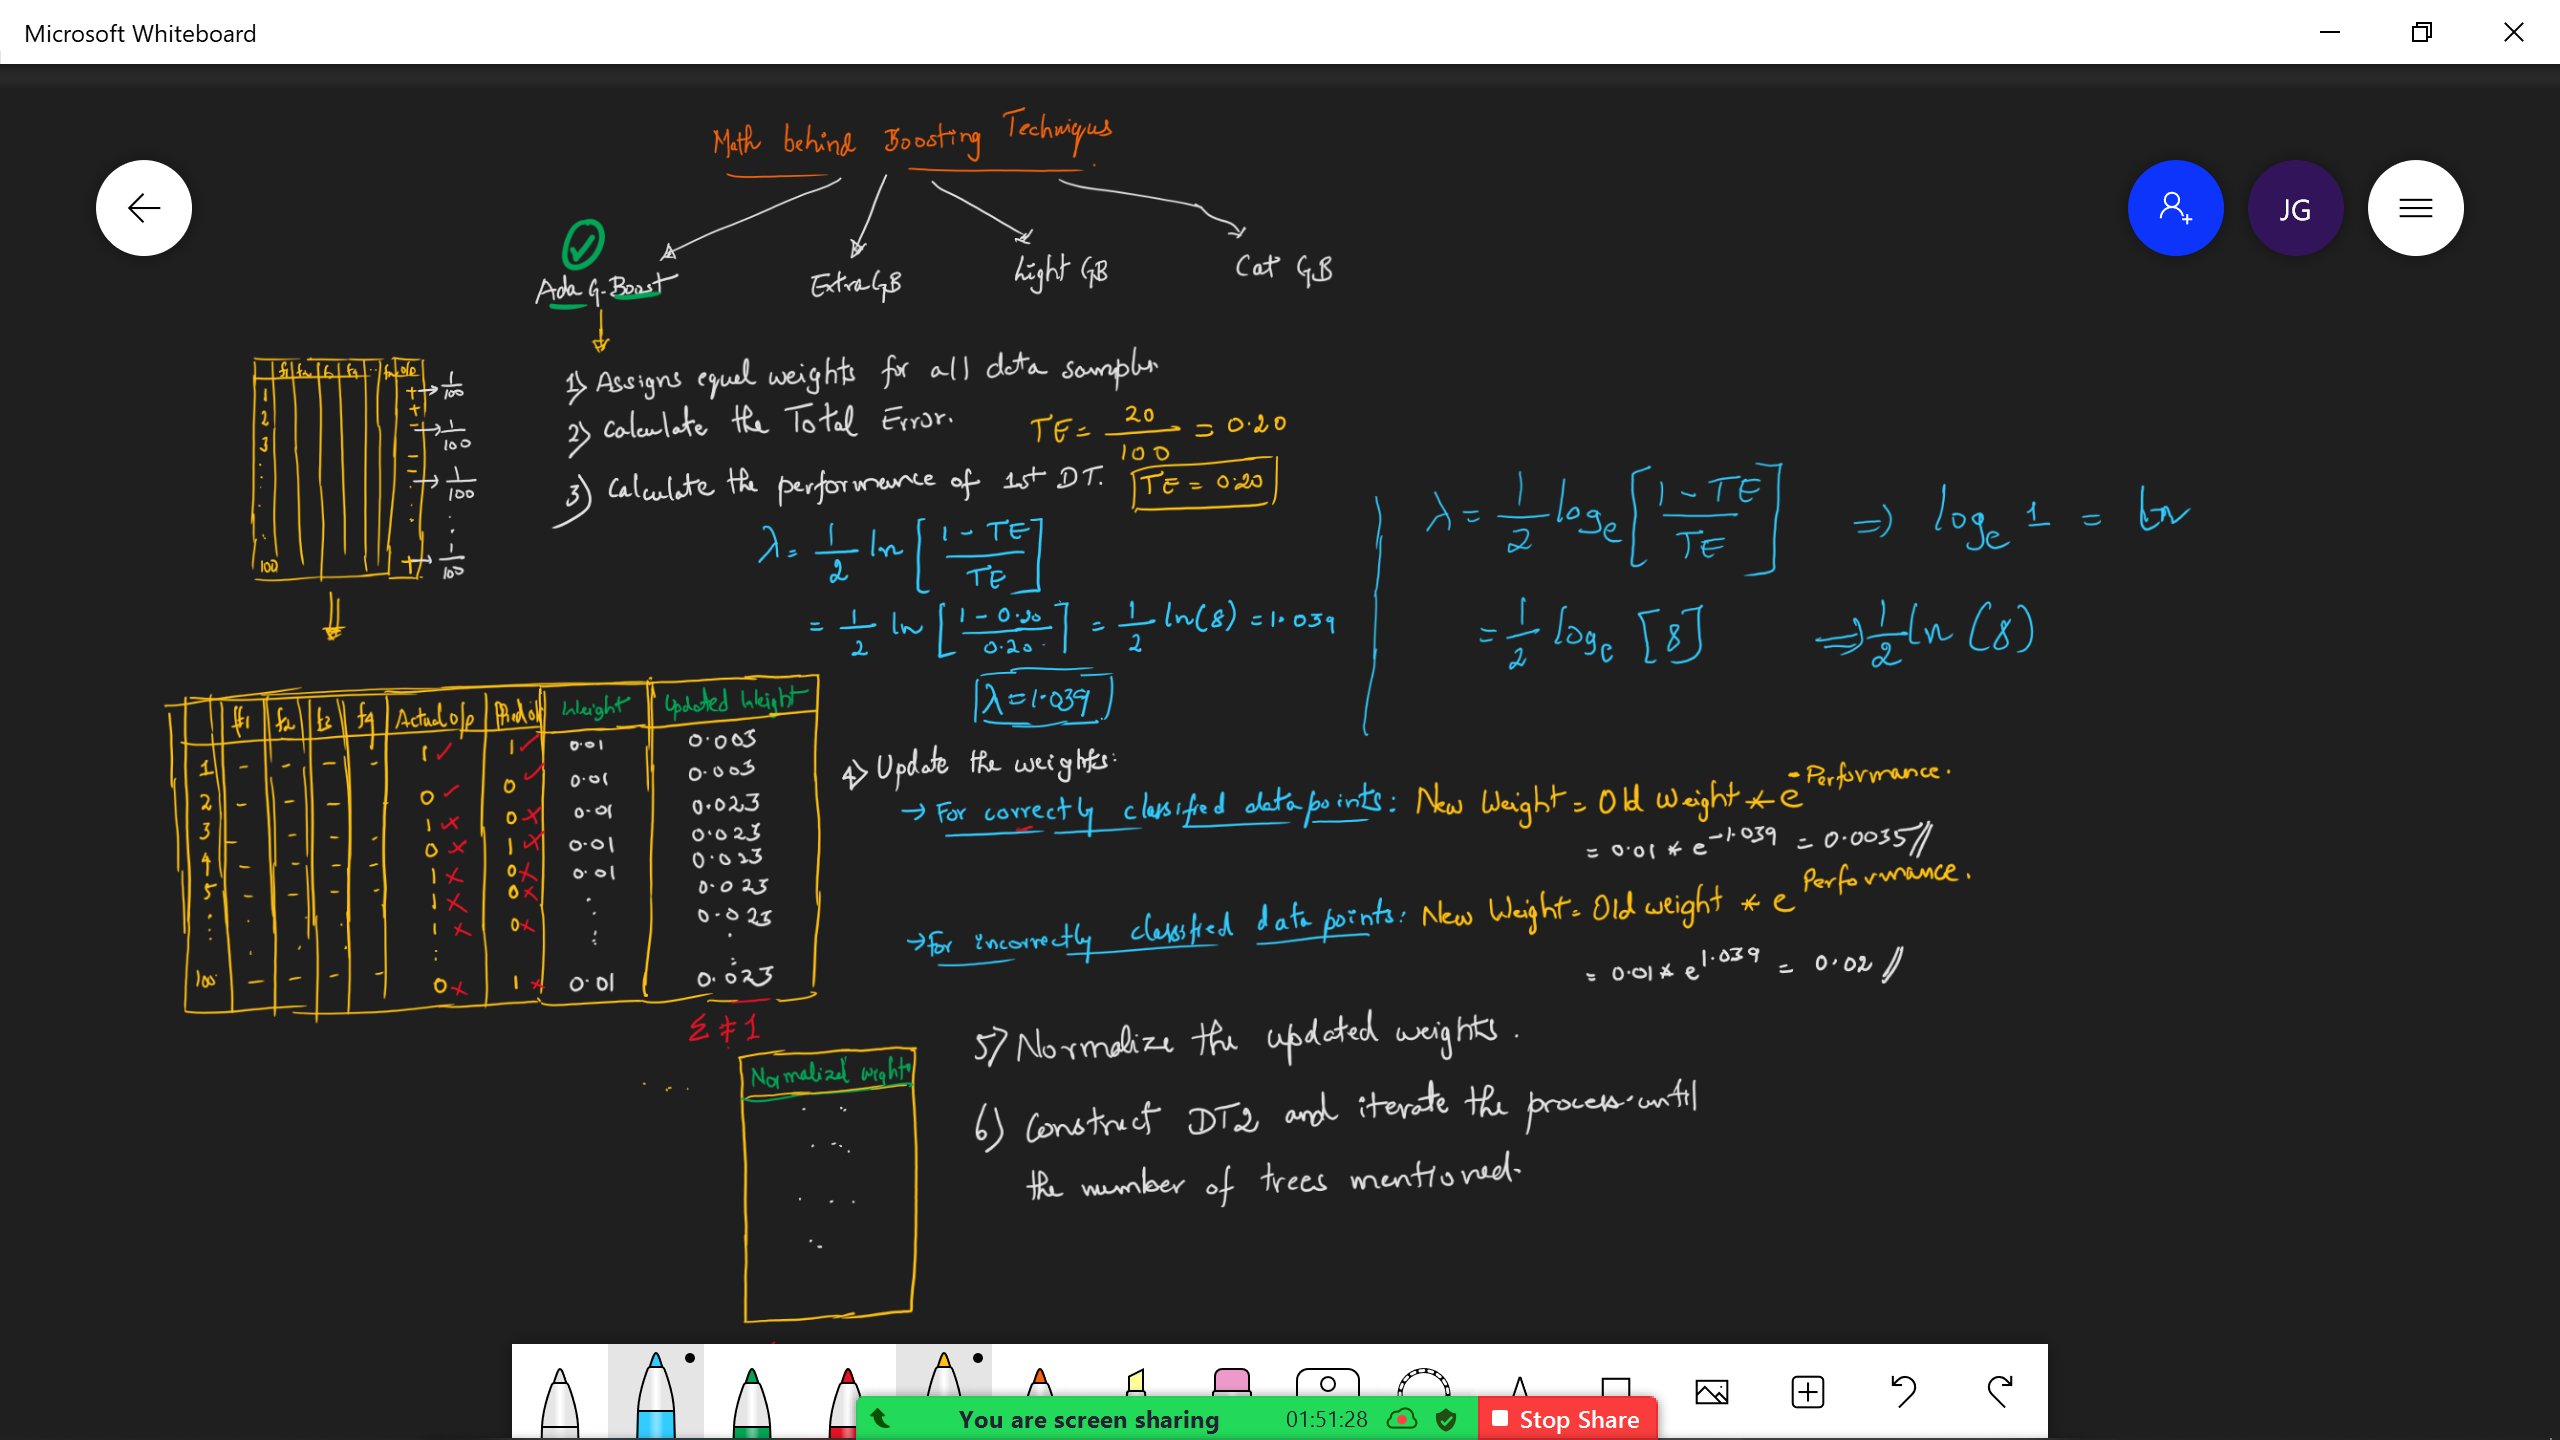 Microsoft Whiteboard
Math behind Boosting Techniqus
JG
Ada G.Boost
ExtraGB
Light GB
Cat GB
f1 f2 f3 f4 .. fn o/p
1 + → 1/100
2 +
3 - → 1/100
-
- → 1/100
100 + → 1/100
1) Assigns equal weights for all data samples.
2) Calculate the Total Error. TE = 20/100 = 0.20
3) Calculate the performance of 1st DT. TE = 0.20
λ = 1/2 ln [1 - TE / TE]
= 1/2 ln [1 - 0.20 / 0.20] = 1/2 ln(8) = 1.039
λ = 1.039
λ = 1/2 loge [1 - TE / TE] => loge 1 = ln
= 1/2 loge [8] => 1/2 ln (8)
f1 f2 f3 f4 Actual o/p Pred o/p Weight Updated Weight
1 - - - - 1 ✓ 1 ✓ 0.01 0.003
2 - - - 0 ✓ 0 ✓ 0.01 0.003
3 - - - - 1 × 0 × 0.01 0.023
4 - - - - 0 × 1 × 0.01 0.023
5 - - - - 1 × 0 × 0.01 0.023
1 × 0 × 0.023
1 × 0 × 0.023
100 - - - - 0 × 1 × 0.01 0.023
Σ ≠ 1
4) Update the weights:
→ For correctly classified data points: New Weight = Old Weight * e^-Performance.
= 0.01 * e^-1.039 = 0.0035//
→ For incorrectly classified data points: New Weight = Old weight * e^Performance.
= 0.01 * e^1.039 = 0.02 //
Normalized wights
5) Normalize the updated weights.
6) Construct DT2 and iterate the process until
the number of trees mentioned.
You are screen sharing 01:51:28 Stop Share